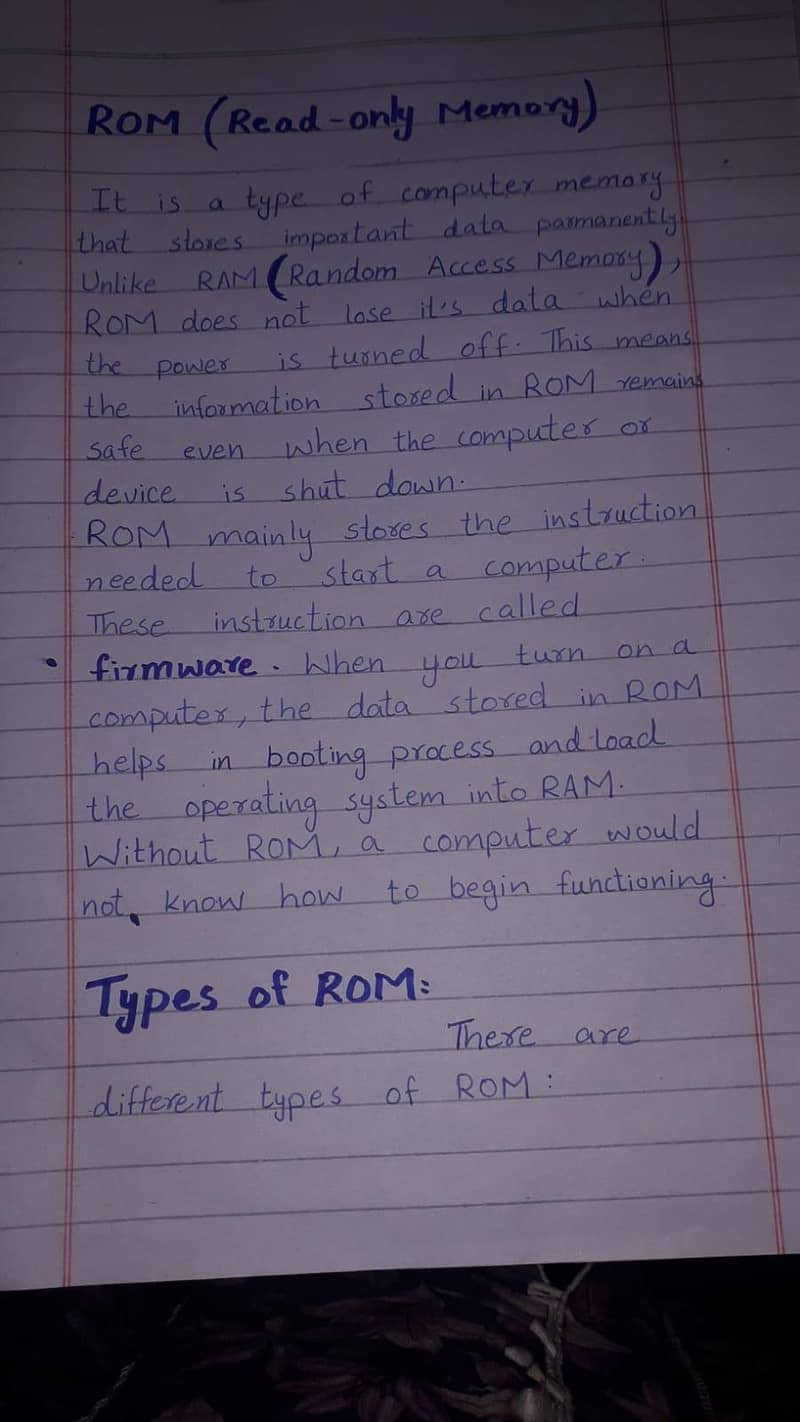 ROM (Read-only Memory)
It is a type of computer memory
that stores important data parmanently
Unlike RAM (Random Access Memory),
ROM does not lose it's data when
the power is turned off. This means
the information stored in ROM remains
safe even when the computer or
device is shut down.
ROM mainly stores the instruction
needed to start a computer.
These instruction are called
• firmware. When you turn on a
computer, the data stored in ROM
helps in booting process and load
the operating system into RAM.
Without ROM, a computer would
not, know how to begin functioning.
Types of ROM:
There are
different types of ROM: